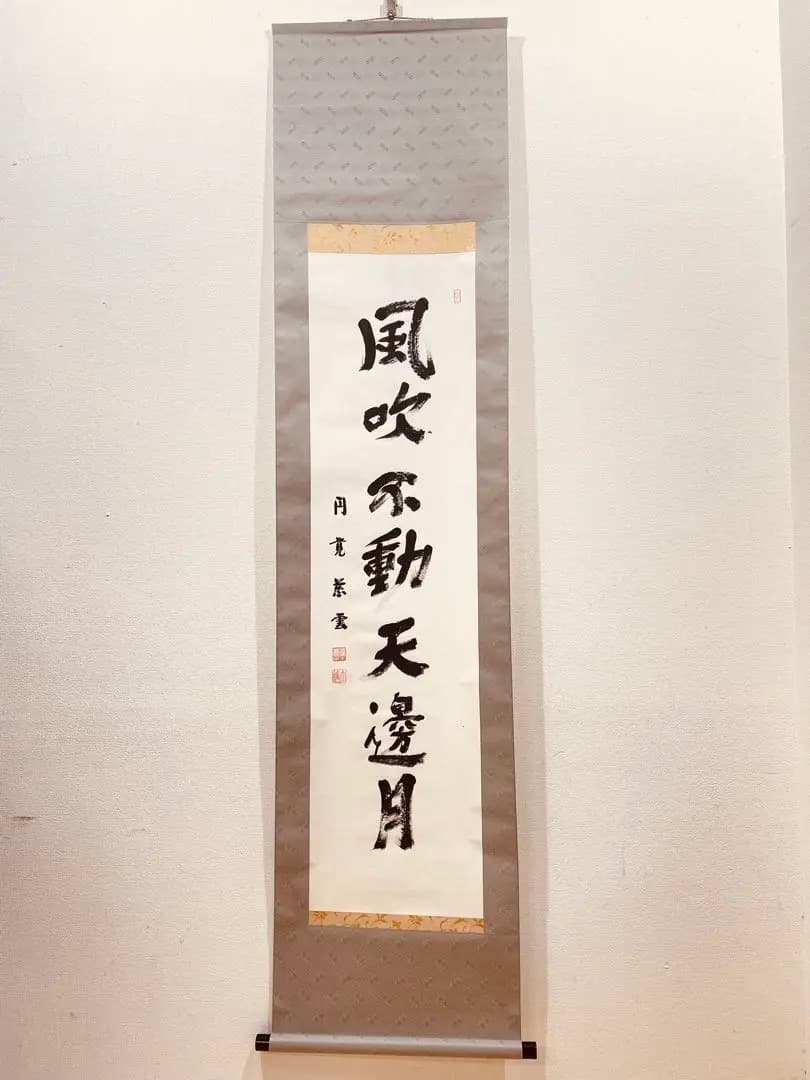 風吹不動天邊月
円覚慈雲